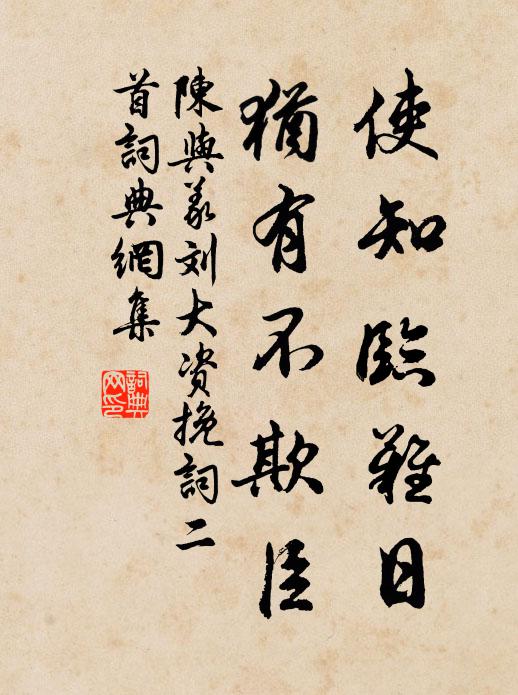 使知臨難日
猶有不欺臣
陳與義劉大資挽詞二
首詞典網集
詞典
网印